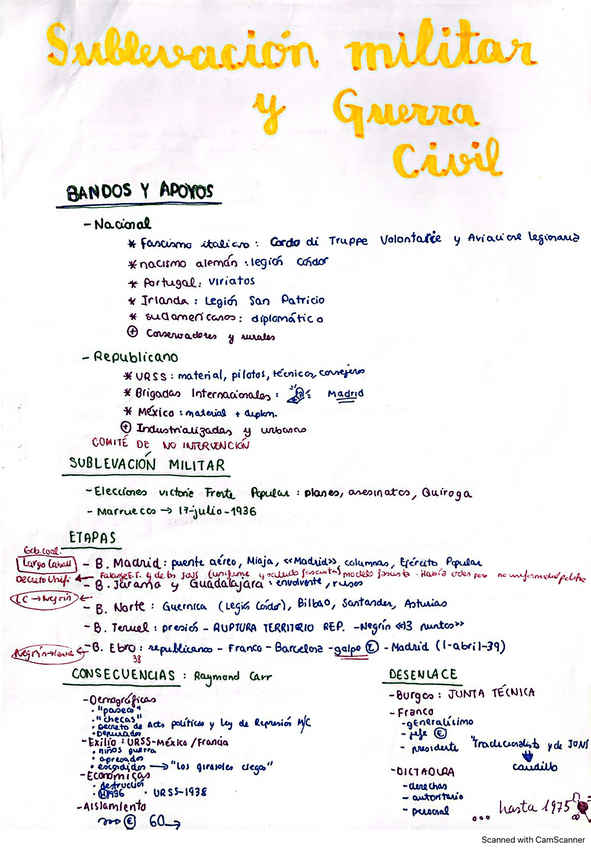 Sublevación militar
y Guerra
Civil
BANDOS Y APOYOS
- Nacional
* Fascismo italiano: Cordo di Truppe Volontarie y Aviacione legionaria
* nacismo alemán: legión Cóndor
* Portugal: Viriatos
* Irlanda: Legión San Patricio
* sudamericanos: diplomático
⊕ Conservadores y rurales
- Republicano
* URSS: material, pilotos, técnicos, consejeros
* Brigadas Internacionales: Madrid
* México: material + diplom.
⊕ Industrializadas y urbanas
COMITÉ DE NO INTERVENCIÓN
SUBLEVACIÓN MILITAR
- Elecciones victoria Frente Popular: planes, asesinatos, Quiroga
- Marruecos → 17-julio-1936
ETAPAS
Gob. coal.
Largo Caball
- B. Madrid: puente aéreo, Miaja, «Madrid», columnas, Ejército Popular
Decreto Unifi ← Falange E. y de las JONS (uniforme y saludo fascista) modelo fascista. Había orden pero no uniformidad política
- B. Jarama y Guadalajara: envolvente, rusos
LC → Negrín
- B. Norte: Guernica (Legión Cóndor), Bilbao, Santander, Asturias
- B. Teruel: presión - RUPTURA TERRITORIO REP. - Negrín «13 puntos»
- B. Ebro: republicanos - Franco - Barcelona - golpe Ⓔ - Madrid (1-abril-39)
38
CONSECUENCIAS: Raymond Carr
- Demográficas
· "paseo"
· "checas"
· Decreto de Actos políticos y Ley de Represión M/C
· Depurados
- Exilio: URSS-México/Francia
· niños guerra
· apresados
· escondidos → "Los girasoles ciegos"
- Económicas
· destrucción
· 1936 · URSS-1938
- Aislamiento
Ⓔ 60 →
DESENLACE
- Burgos: JUNTA TÉCNICA
- Franco
- generalísimo
- jefe Ⓔ
- presidente "Tradicionalista y de JONS
caudillo
- DICTADURA
- derechas
- autoritario
- personal
... hasta 1975
Scanned with CamScanner